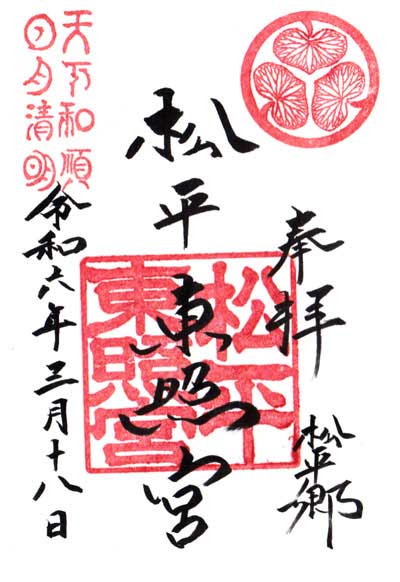 奉拝
松平郷
松平東照宮
松平
東照宮
令和六年三月十八日
天下和順
日月清明